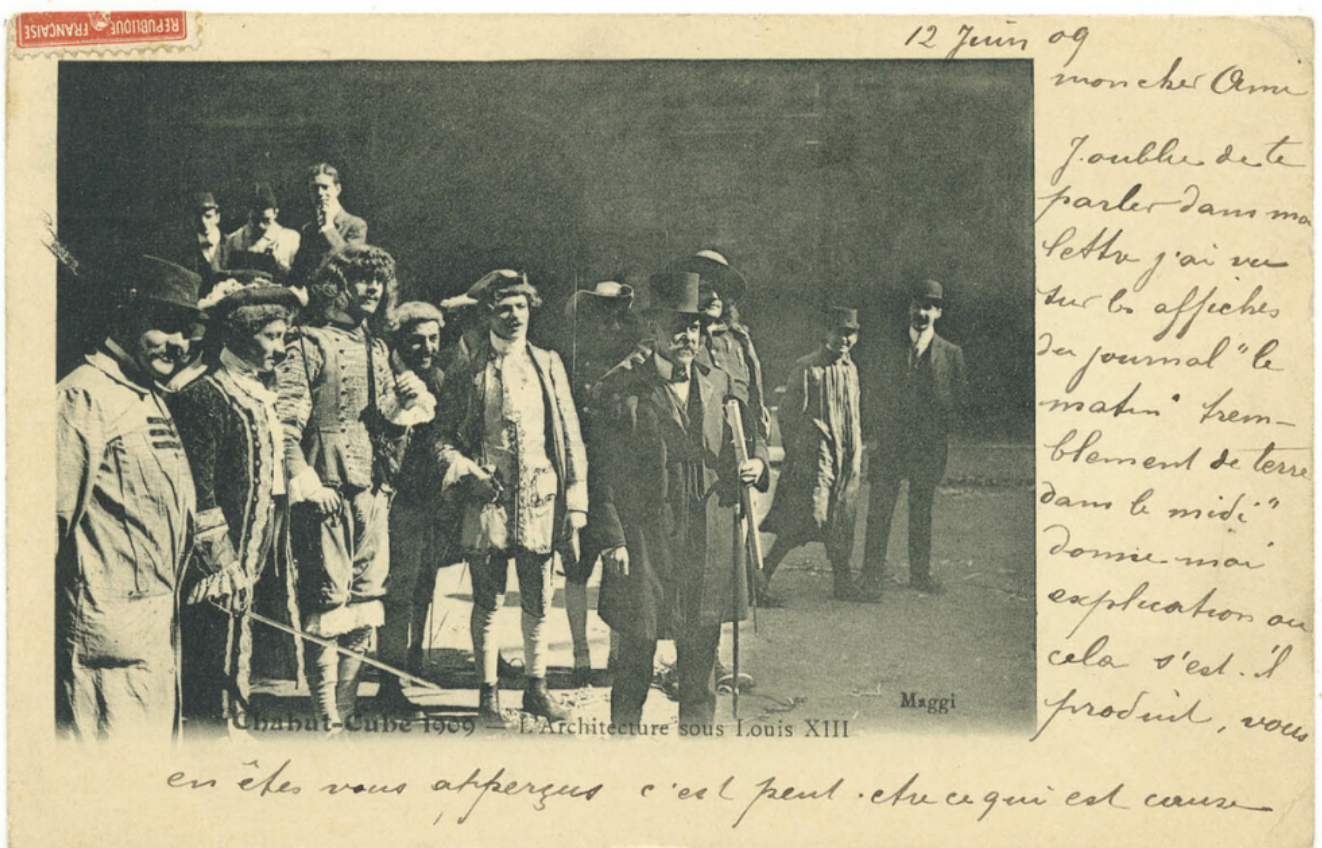 REPUBLIQUE FRANCAISE
12 Juin 09
mon cher Ami
J'oublie de te
parler dans ma
lettre j'ai vu
sur les affiches
du journal "le
matin" trem-
blement de terre
dans le midi"
donne moi
explication ou
cela s'est-il
produit, vous
en êtes vous apperçus c'est peut-etre ce qui est cause
Maggi
Chahut-Cube 1909 — L'Architecture sous Louis XIII